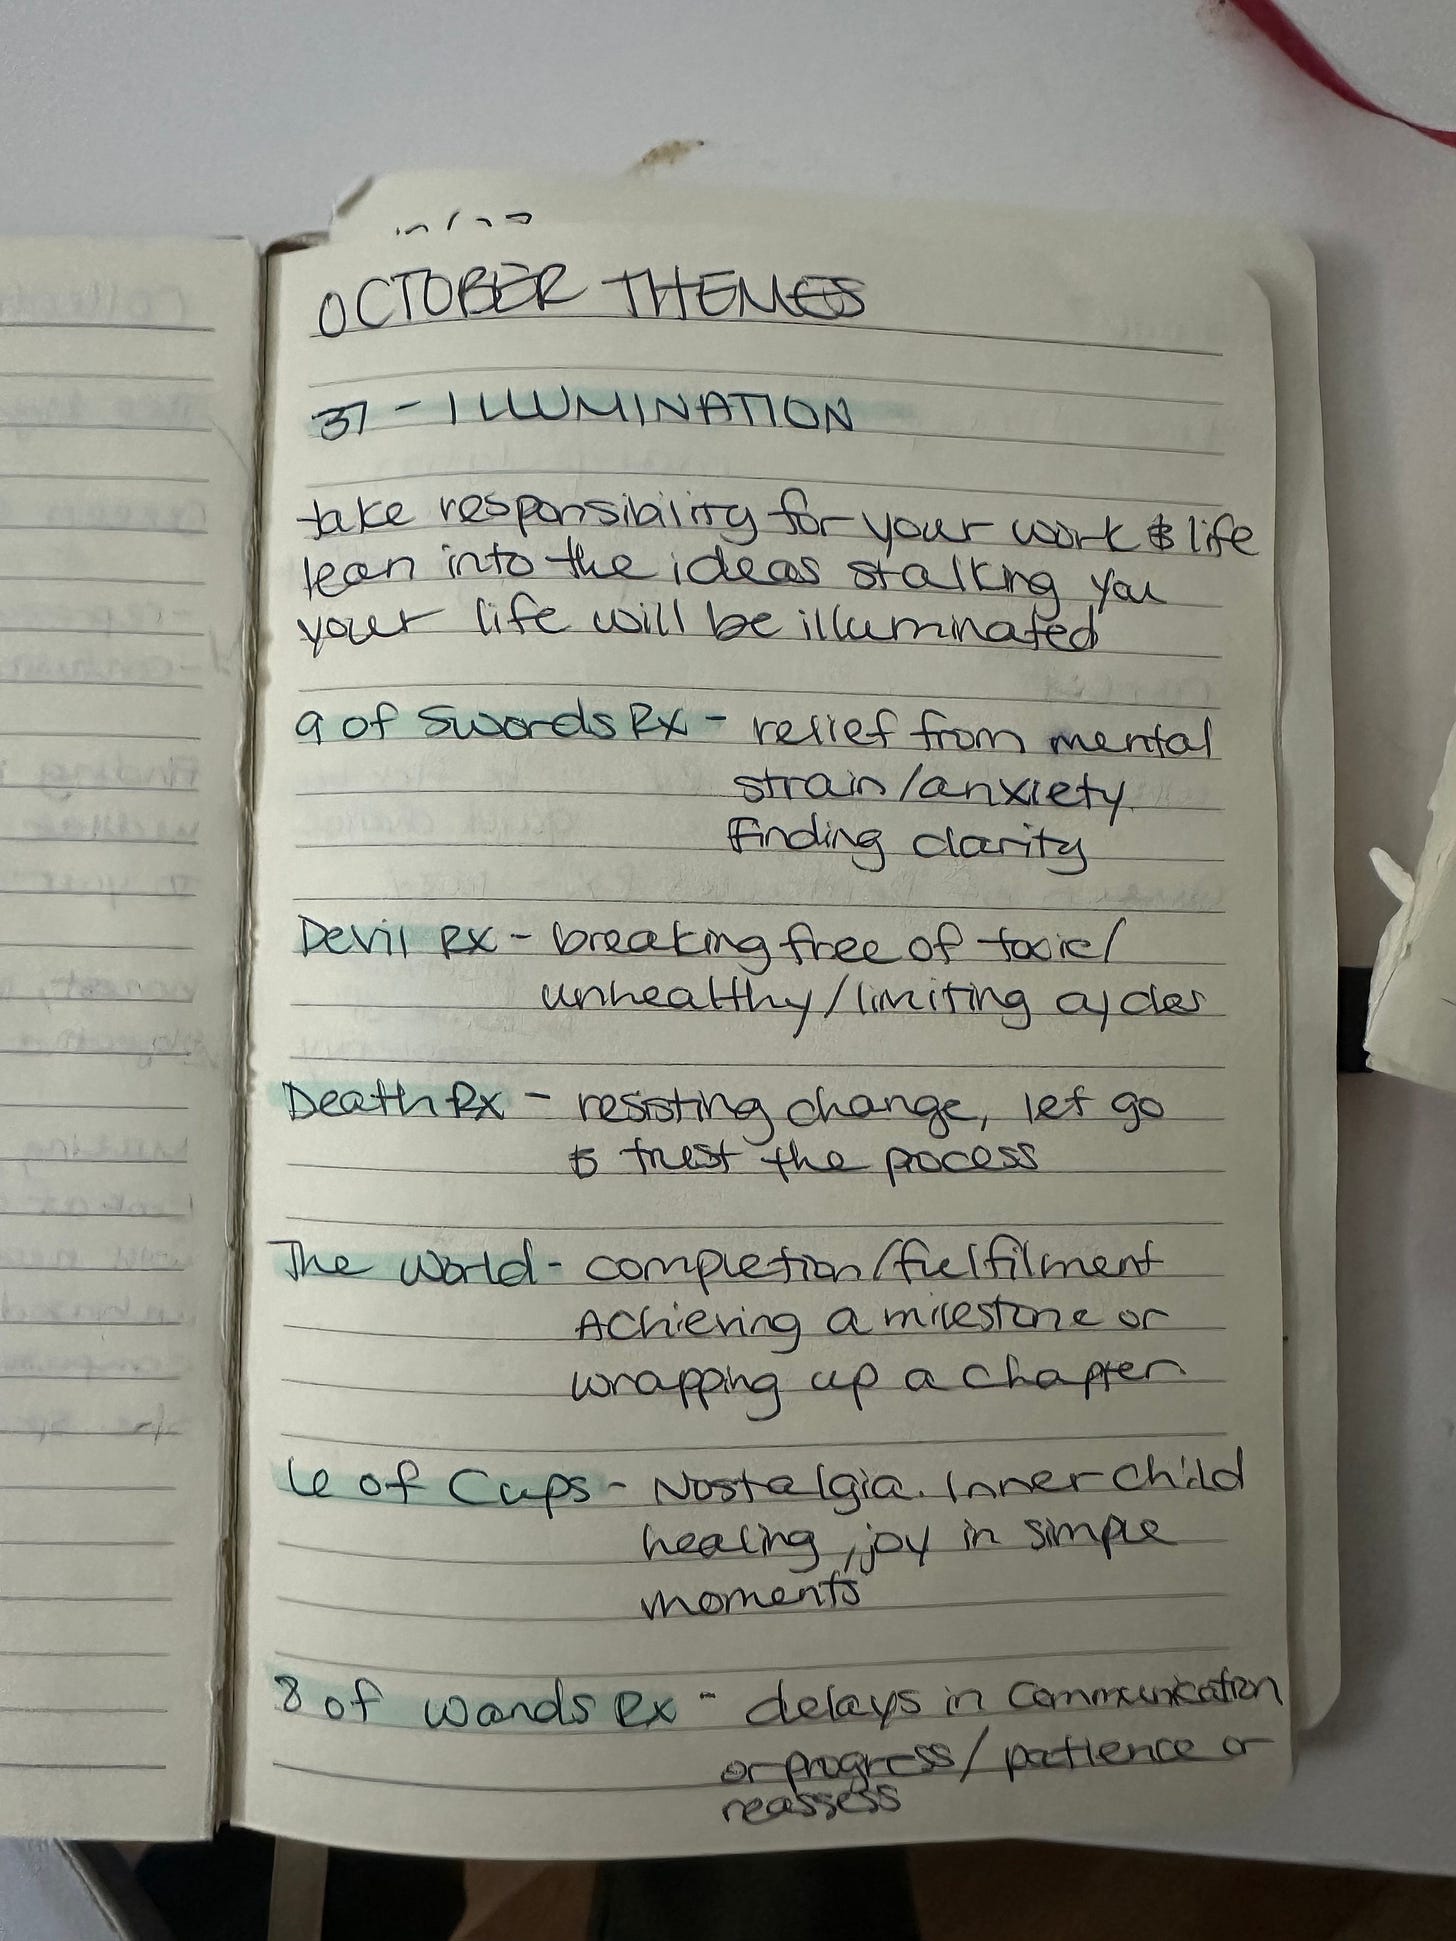 OCTOBER THEMES
37 - ILLUMINATION
take responsibility for your work & life
lean into the ideas stalking you
your life will be illuminated
9 of Swords Rx - relief from mental
strain/anxiety.
Finding clarity
Devil Rx - breaking free of toxic/
unhealthy/limiting cycles
Death Rx - resisting change, let go
& trust the process
The World - completion/fulfilment
Achieving a milestone or
wrapping up a chapter
6 of Cups - Nostalgia. Inner child
healing, joy in simple
moments
8 of Wands Rx - delays in communication
or progress/patience or
reassess